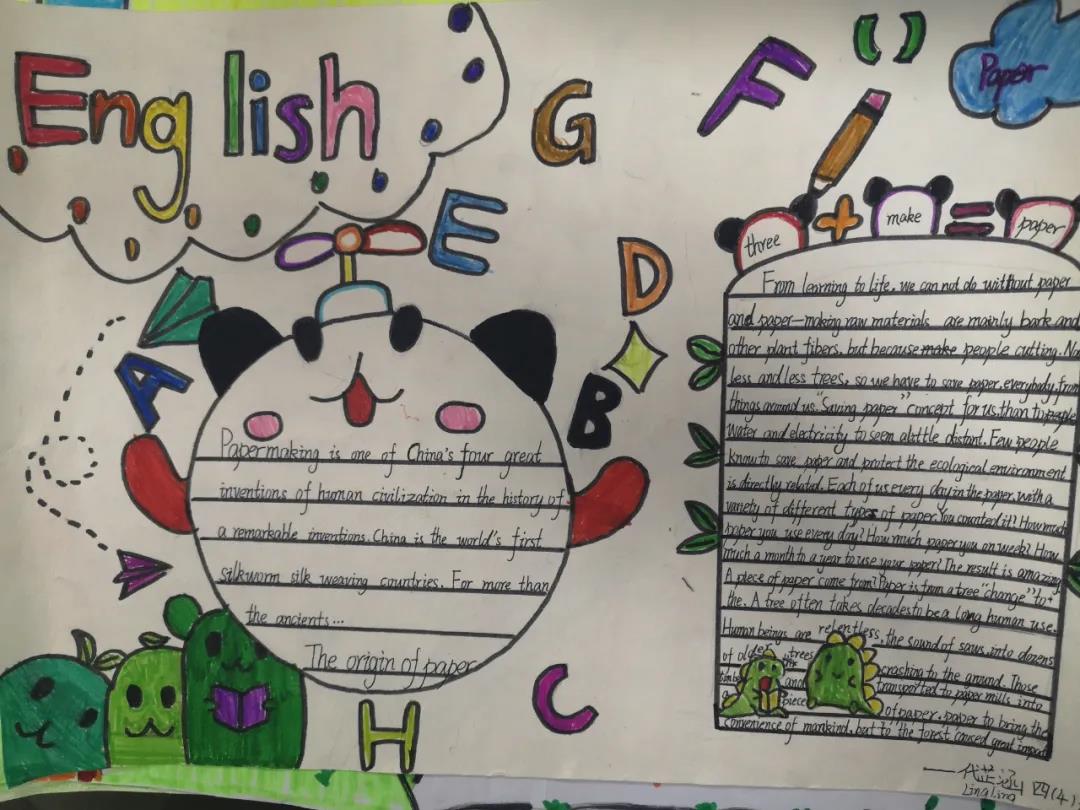 English
G
F
()
Paper
E
D
A
B
C
H
three + make = paper
Papermaking is one of China's four great
inventions of human civilization in the history of
a remarkable inventions. China is the world's first
silkworm silk weaving countries. For more than
the ancients...
The origin of paper
From learning to life, we can not do without paper
and paper—making raw materials are mainly bark and
other plant fibers, but because make people cutting. No
less and less trees, so we have to save paper, everybody, from
things around us. "Saving paper" concept for us, than to people
Water and electricity to seem alittle distant. Few people
know to save paper and protect the ecological environment
is directly related. Each of us every day in the paper, with a
variety of different types of paper. You counted it? How much
paper you use every day? How much paper you on week? How
much a month to a year to use your paper? The result is amazing
A piece of paper come from? Paper is from a tree "change" to
the. A tree often takes decades to be a long human use.
Human beings are relentless, the sound of saws, into dozens
of older trees crashing to the ground. Those
and transported to paper mills, into
a piece of paper, paper to bring the
convenience of mankind, but to "the forest, caused great impact
一代芷涵 四(4)
Lingling